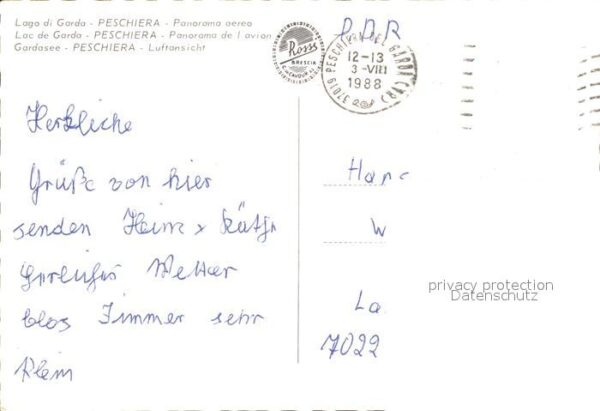 Lago di Garda - PESCHIERA - Panorama aereo
Lac de Garda - PESCHIERA - Panorama de l avion
Gardasee - PESCHIERA - Luftansicht
Ross
BRESCIA
P.P.R
37019 PESCHIERA DEL GARDA (VR)
12-13
3-VIII
1988
Herzliche
Grüße von hier
senden Heinz
Wetter
blos Zimmer sehr
klein
Hans
W
La
7022
privacy protection
Datenschutz